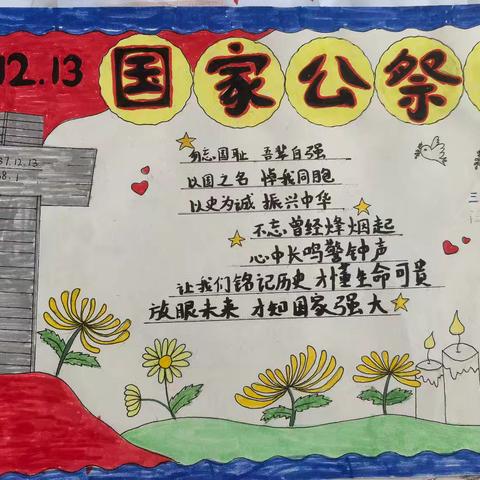 12.13
国家公祭
37.12.13
38.1
勿忘国耻 吾辈自强
以国之名 悼我同胞
以史为诫 振兴中华
不忘曾经烽烟起
心中长鸣警钟声
让我们铭记历史 才懂生命可贵
放眼未来 才知国家强大
三